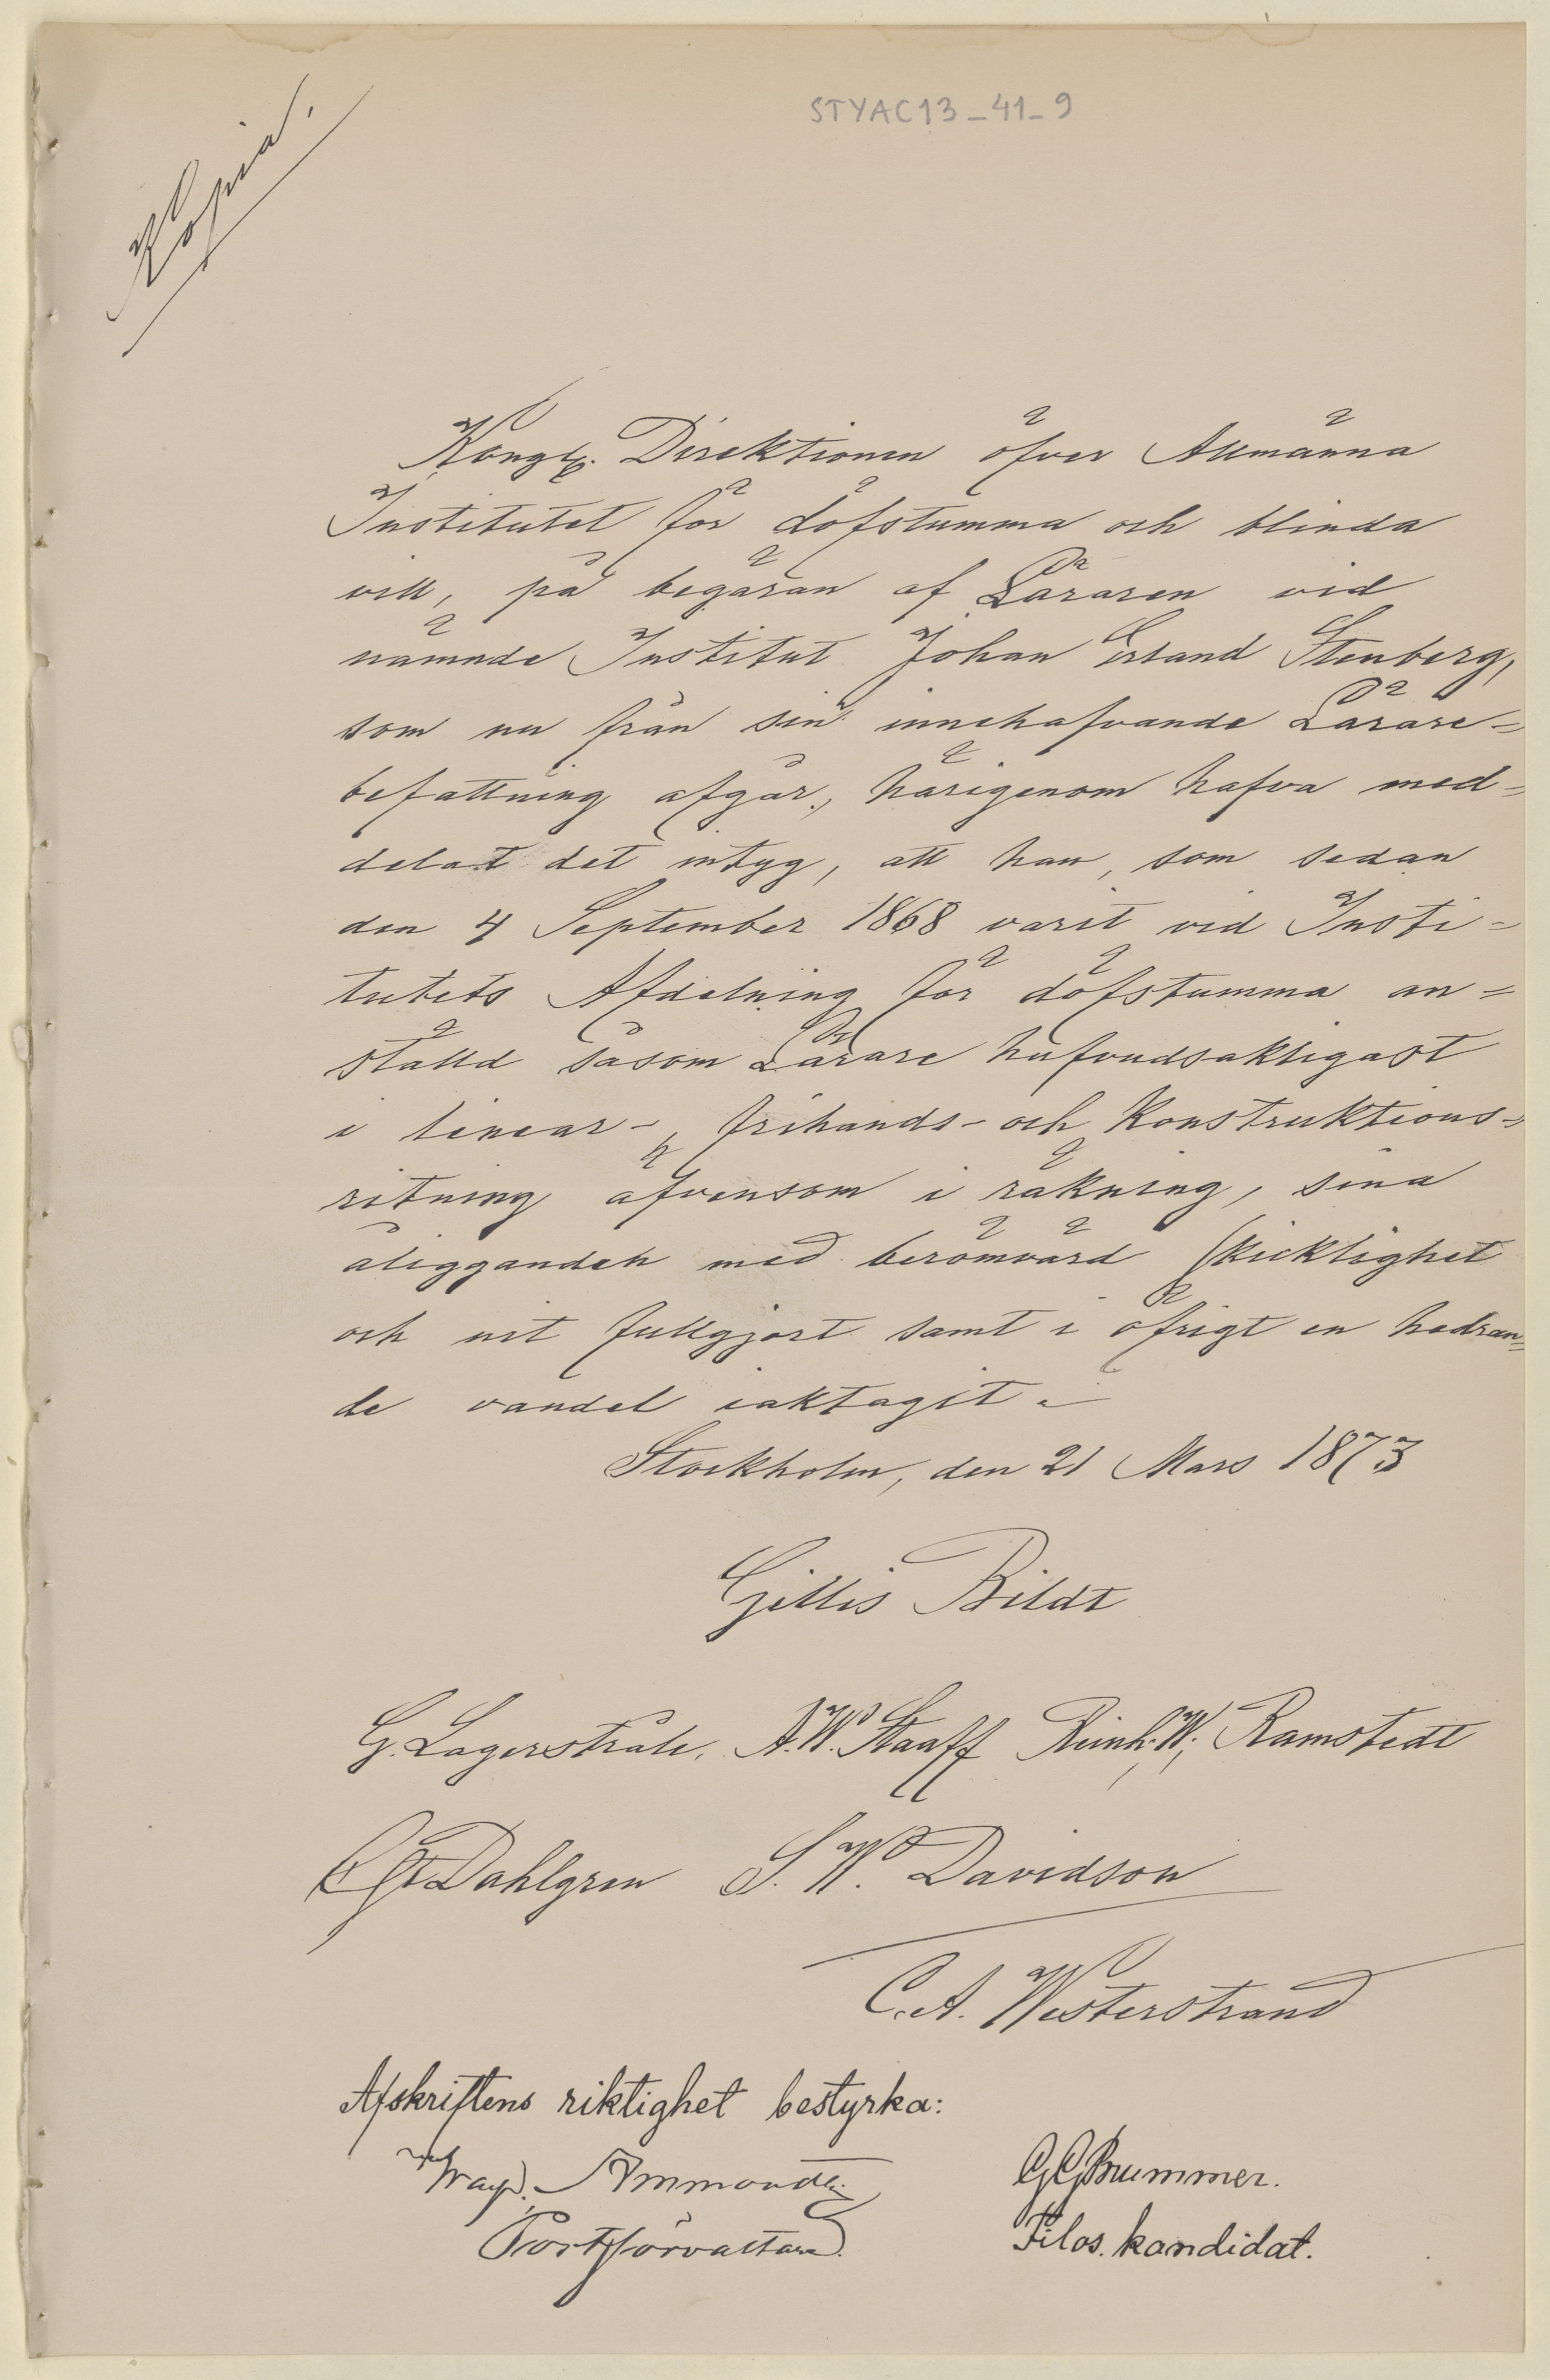 STYAC13_41_9
Kopia.
Kongl. Direktionen öfver Allmänna
Institutet för döfstumma och blinda
vill, på begäran af Läraren vid
nämnde Institut Johan Erland Stenberg,
som nu från sin innehafvande Lärare=
befattning afgår, härigenom hafva med=
delat det intyg, att han, som sedan
den 4 September 1868 varit vid Insti=
tutets Afdelning för döfstumma an=
ställd såsom Lärare hufvudsakligast
i linear-, frihands- och Konstruktions=
ritning äfvensom i räkning, sina
åligganden med berömvärd skicklighet
och nit fullgjort samt i öfrigt en hedran=
de vandel iakttagit.
Stockholm, den 21 Mars 1873
Gillis Bildt
G. Lagerstråle. A. W. Staaff Reinh. W. Ramstedt
Dahlgren S. W. Davidson
C. A. Westerstrand
Afskriftens riktighet bestyrka:
Ammondt G G Brummer.
Postförvaltare. Filos. kandidat.